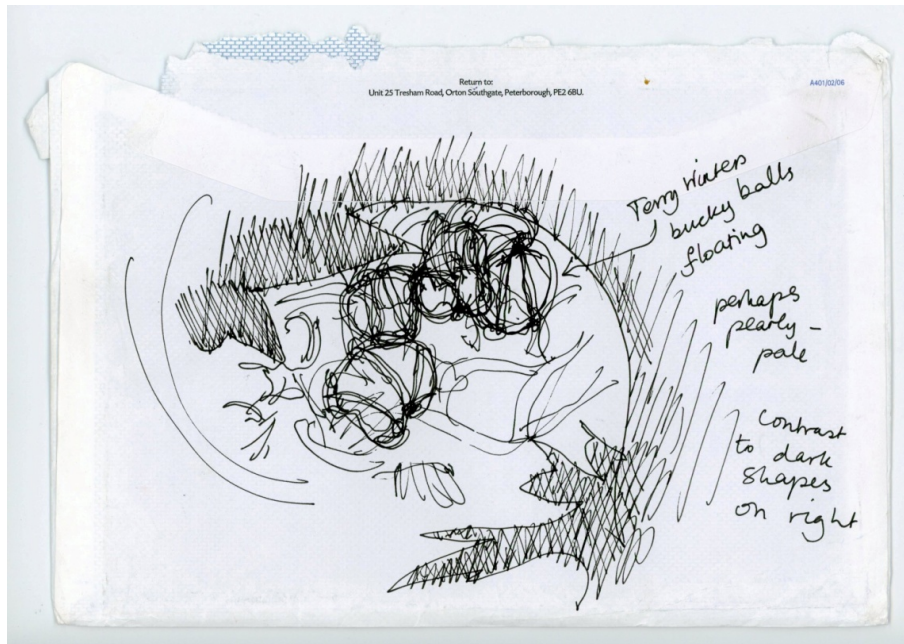 Return to:
Unit 25 Tresham Road, Orton Southgate, Peterborough, PE2 6BU.
A401/02/06
Terry Winters
bucky balls
floating
perhaps
pearly –
pale
Contrast
to dark
shapes
on right